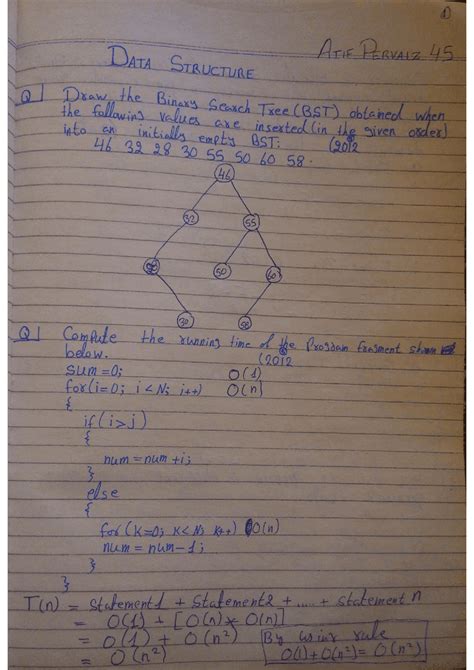 ①
ATIF PERVAIZ 45
DATA STRUCTURE
Q Draw the Binary Search Tree (BST) obtained when
the following values are inserted (in the given order)
into an initially empty BST: (2012
46 32 28 30 55 50 60 58.
46
32 55
28 50 60
30 58
Q Compute the running time of the Program fragment shown
below. (2012
sum=0; O(1)
for(i=0; i<N; i++) O(n)
{
if(i>j)
{
num=num+i;
}
else
{
for(k=0; k<N; k++) O(n)
num=num-1;
}
}
T(n) = Statement1 + Statement2 + .... + Statement n
= O(1) + [O(n) * O(n)]
= O(1) + O(n²)
= O(n²)
By using rule
O(1)+O(n²)=O(n²)